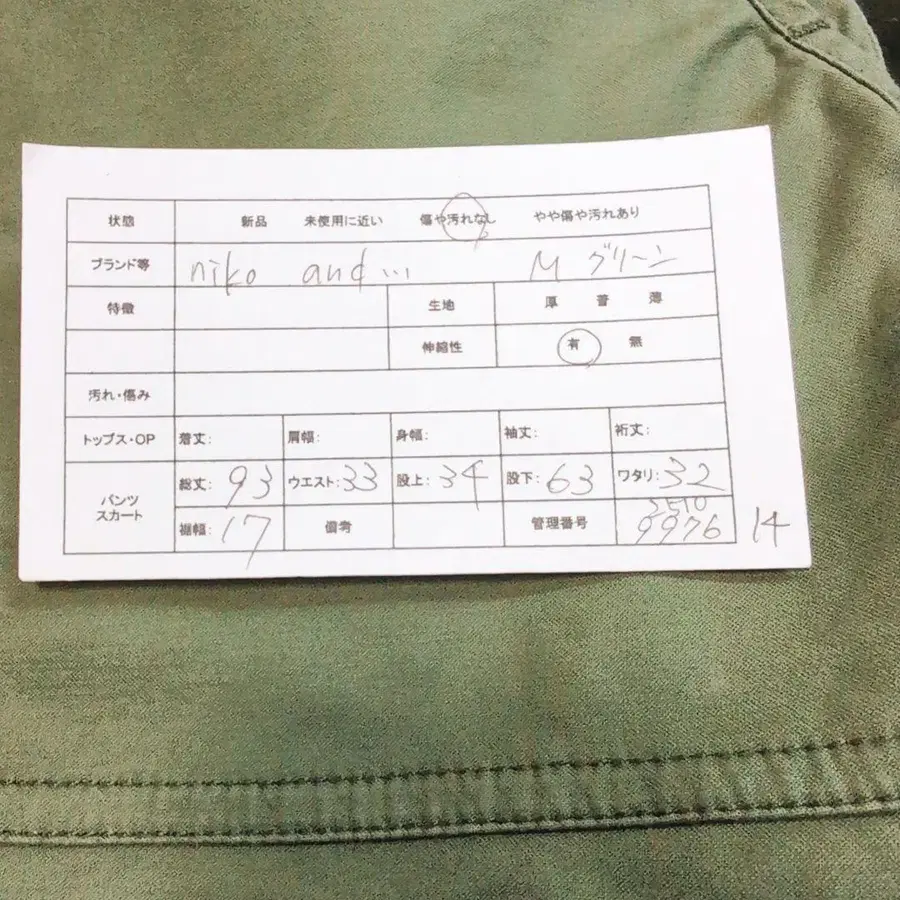 状態 新品 未使用に近い 傷や汚れなし やや傷や汚れあり
ブランド等 niko and... M グリーン
特徴 生地 厚 普 薄
伸縮性 有 無
汚れ・傷み
トップス・OP 着丈: 肩幅: 身幅: 袖丈: 裄丈:
パンツ スカート 総丈: 93 ウエスト: 33 股上: 34 股下: 63 ワタリ: 32
裾幅: 17 備考 管理番号 2510
9976 14